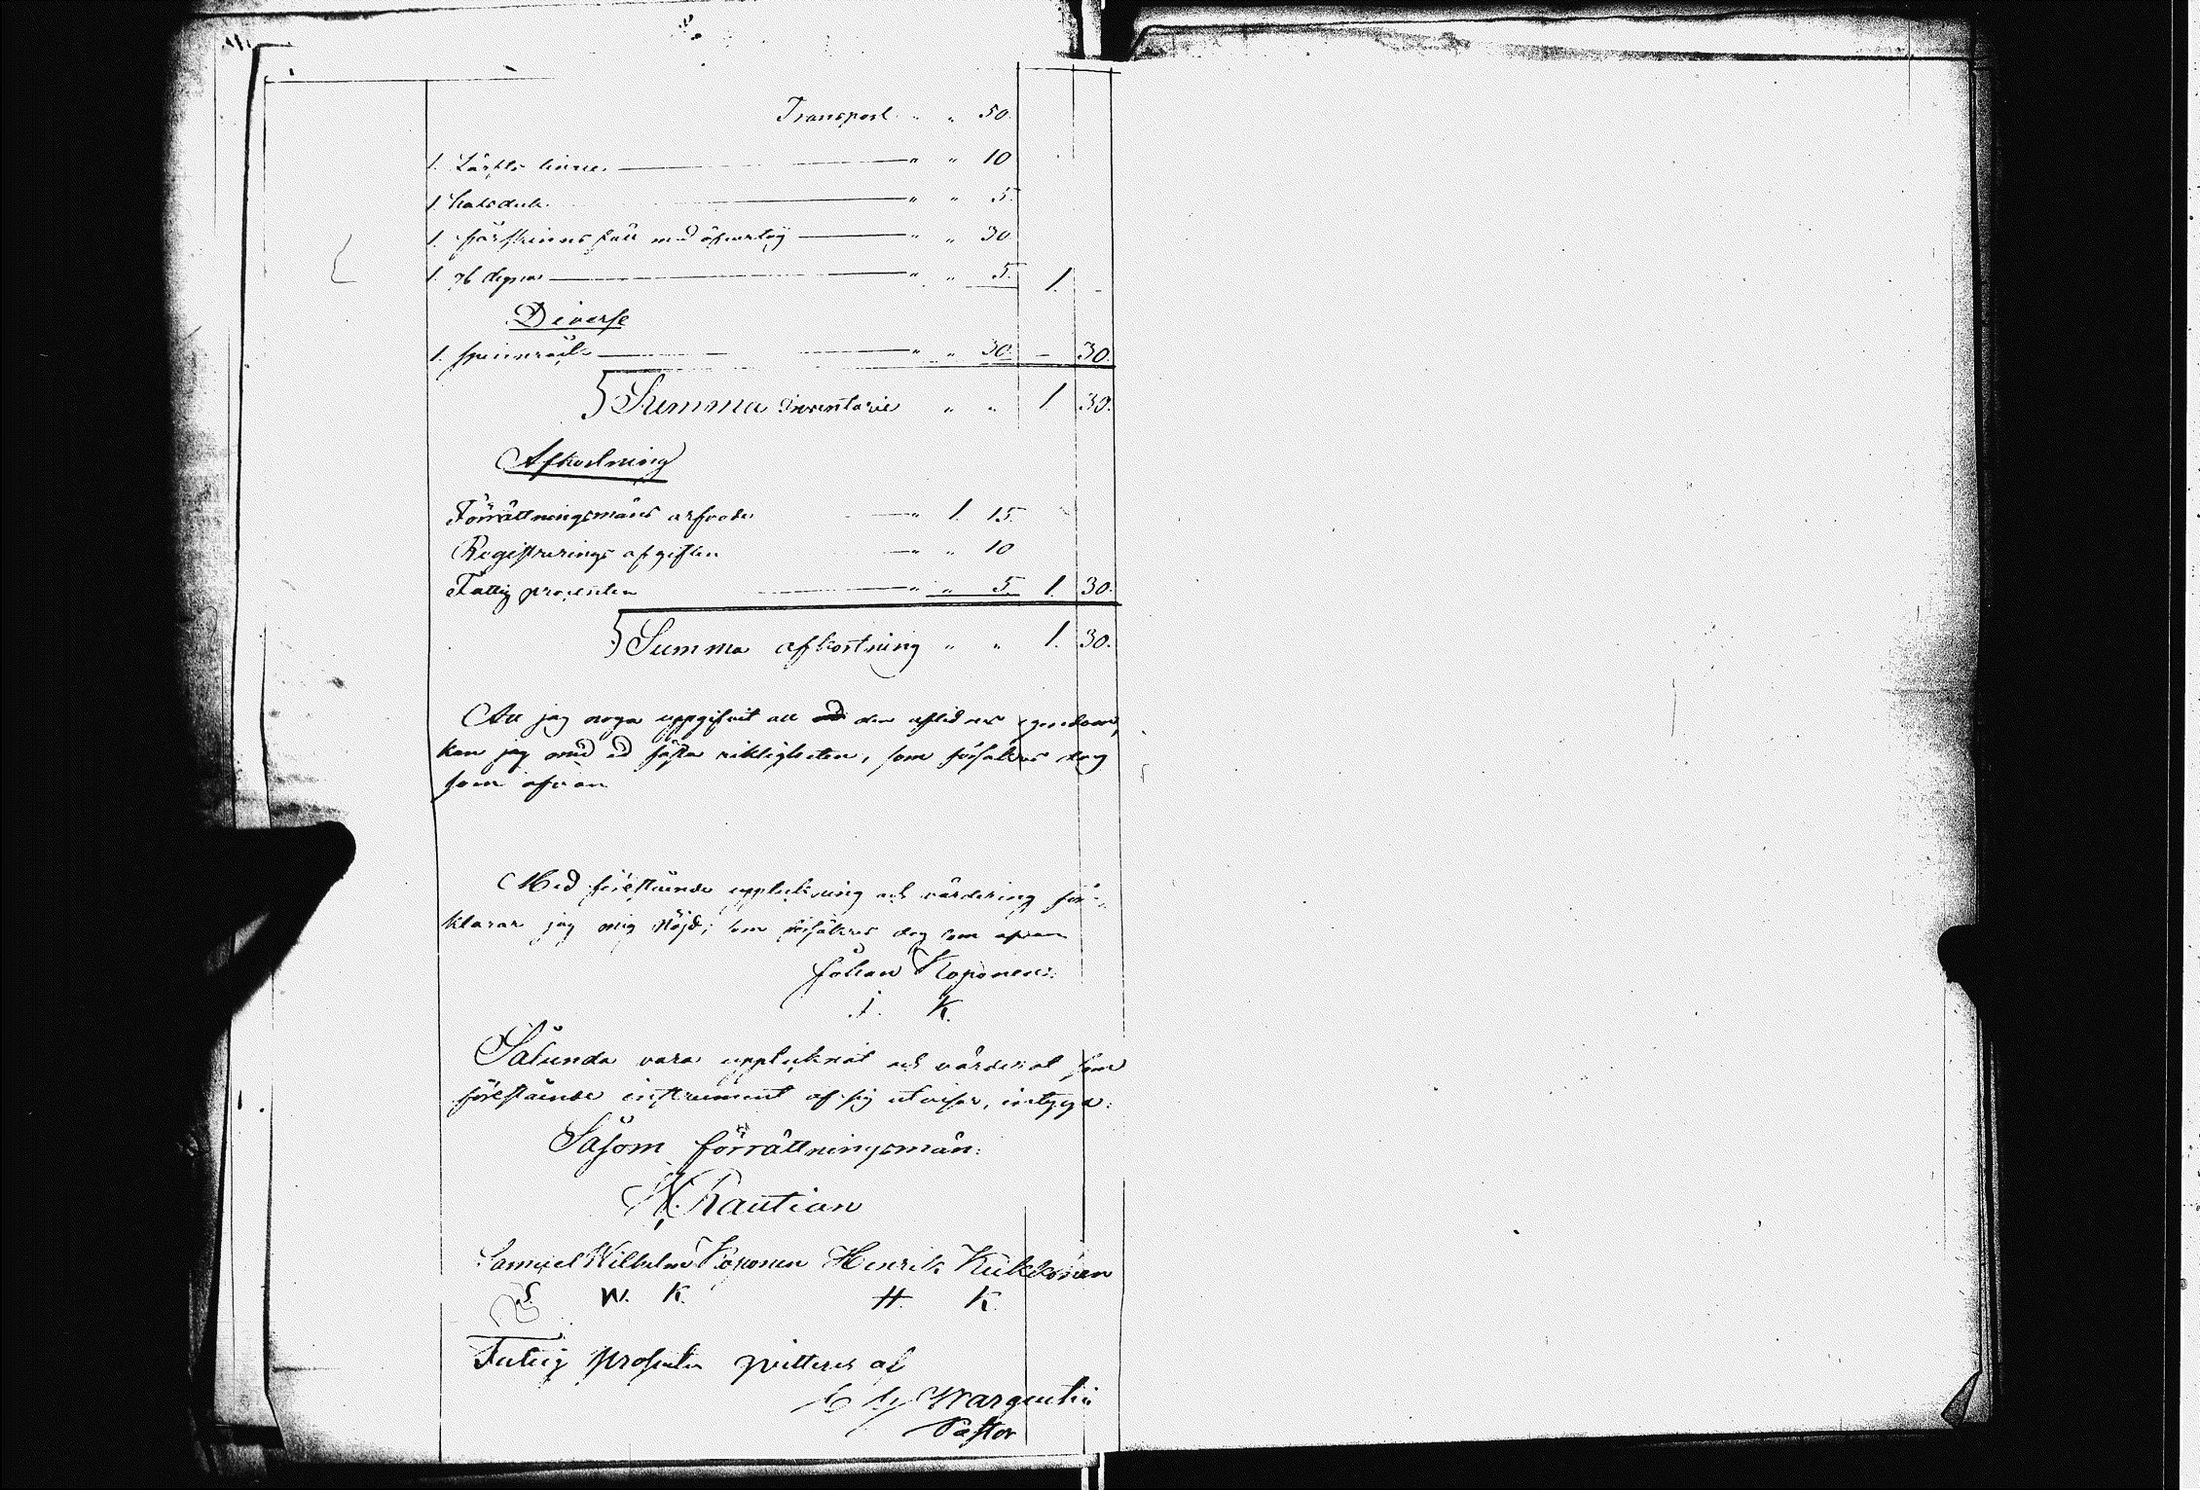 Transport " " 50.
1. Lärfts linne " " 10
1 halsduk " " 5.
1. fårskinns fäll med öfvertyg " " 30
1. " " 5. 1. -
Diverse
1. spinnråck " " 30. - 30.
Summa inventarie " " 1 30.
Afkortning
Förrättningsmäns arfvode " 1. 15.
Registrerings afgiften " " 10
Fattig procenten " " 5. 1. 30.
Summa afkortning " " 1. 30.
Att jag noga uppgifvit all den aflidnes egendom,
kan jag med ed fästa riktigheten, som försäkras dag
som ofvan
Med förestående uppteckning och värdering för-
klarar jag mig nöjd; som försäkras dag som ofvan
Johan Koponen:
J. K.
Sålunda vara upptecknat och värderat som
förestående instrument af sig utvisar, intyga:
Såsom förrättningsmän:
H. Rautian
Samuel Wilhelm Koponen Henrik Kukkonen
S. W. K. H. K.
Fattig prosenten qvitteras af
Wargentin
Pastor